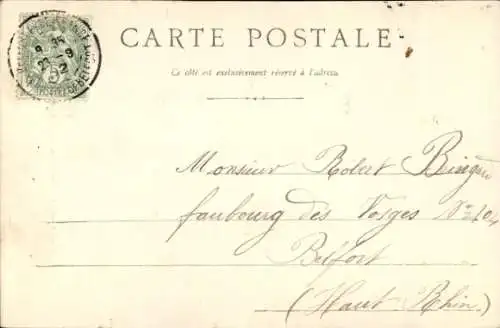 CARTE POSTALE
Ce côté est exclusivement réservé à l'adresse
Monsieur Robert
faubourg des Vosges No 104
Belfort
(Haut Rhin)